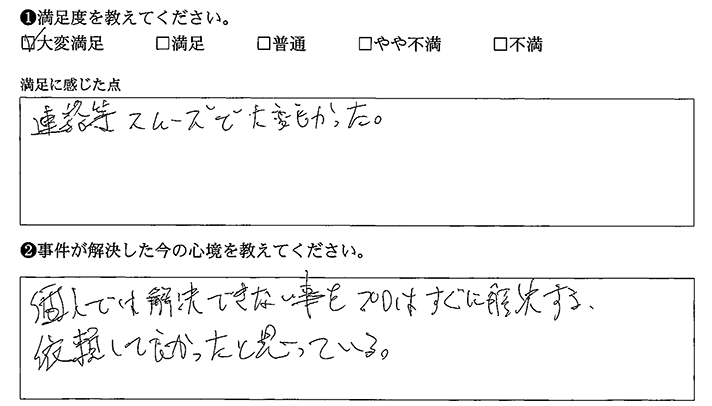 ❶満足度を教えてください。
☑大変満足 □満足 □普通 □やや不満 □不満
満足に感じた点
連絡等スムーズで大変良かった。
❷事件が解決した今の心境を教えてください。
個人では解決できない事をプロはすぐに解決する、
依頼して良かったと思っている。